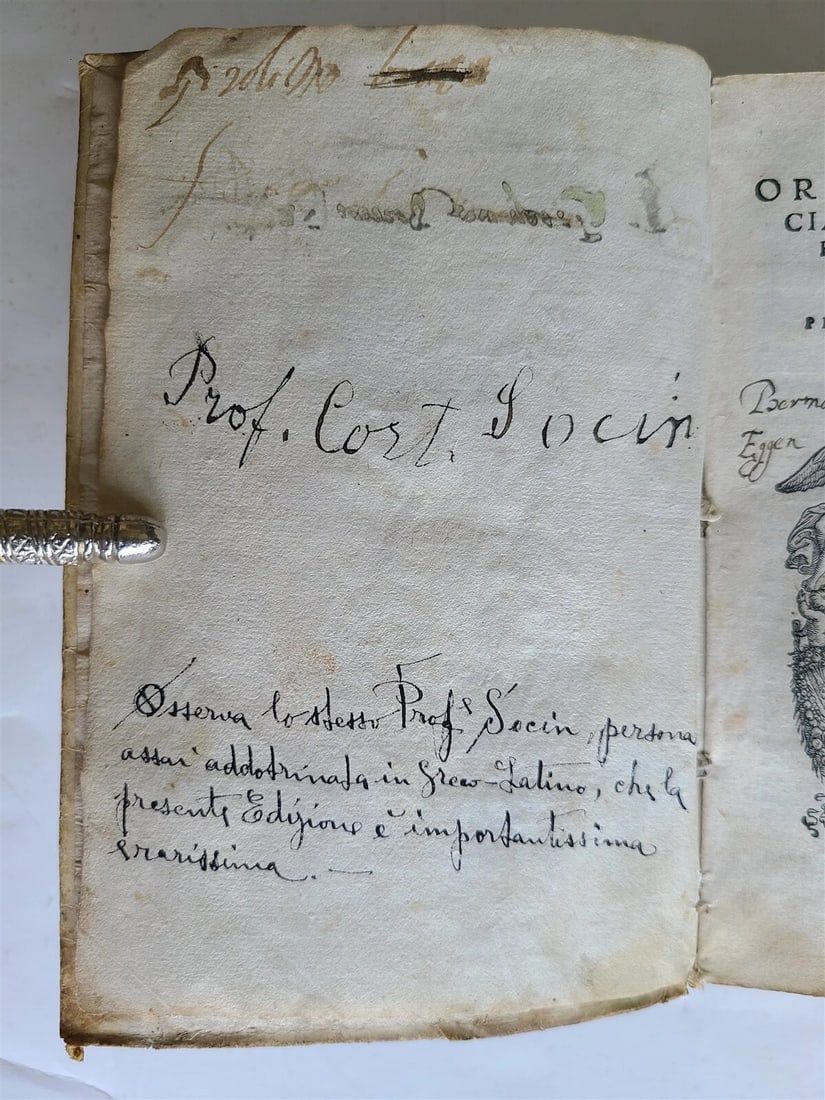 Prof. Cost. Socin
Osserva lo stesso Prof.e Socin, persona
assai addotrinata in Greco-Latino, che la
presente Edizione è importantissima
e rarissima. —
OR
CIA
P
PR
Berna
Eggen